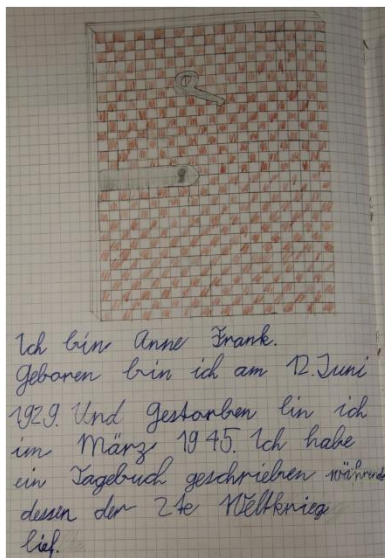 Ich bin Anne Frank.
Geboren bin ich am 12. Juni
1929. Und gestorben bin ich
im März 1945. Ich habe
ein Tagebuch geschrieben während
dessen der 2te Weltkrieg
lief.